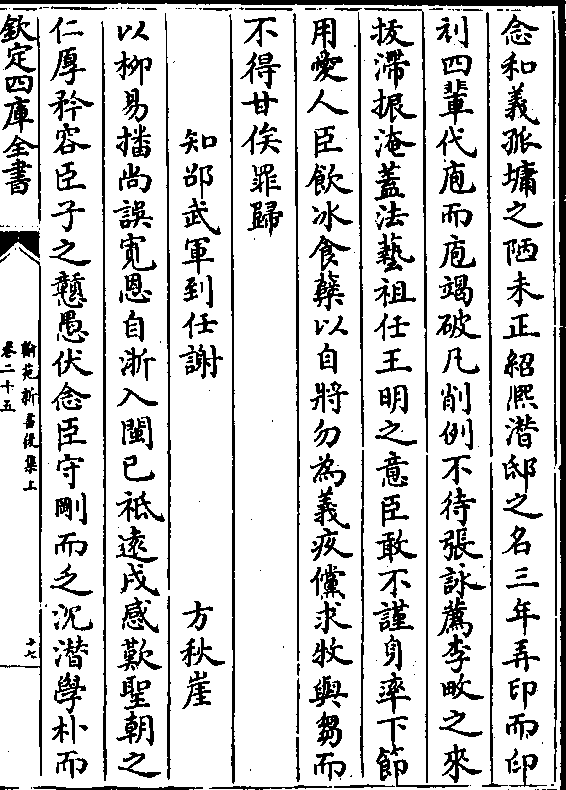 念和義孤墉之陋未正紹熈潜邸之名三年弄印而印
刓四輩代庖而庖竭破凡削例不待張詠薦李畋之來
拔滯振淹蓋法藝祖任王明之意臣敢不謹身率下節
用愛人臣飲冰食蘖以自將勿為義疚儻求牧與芻而
不得甘俟罪歸
知邵武軍到任謝　方秋崖
以柳易播尚誤寛恩自浙入閩已祗遠戍感歎聖朝之
仁厚矜容臣子之戇愚伏念臣守剛而乏沉潜學朴而
欽定四庫全書
翰苑新書後集上
卷二十五
十七